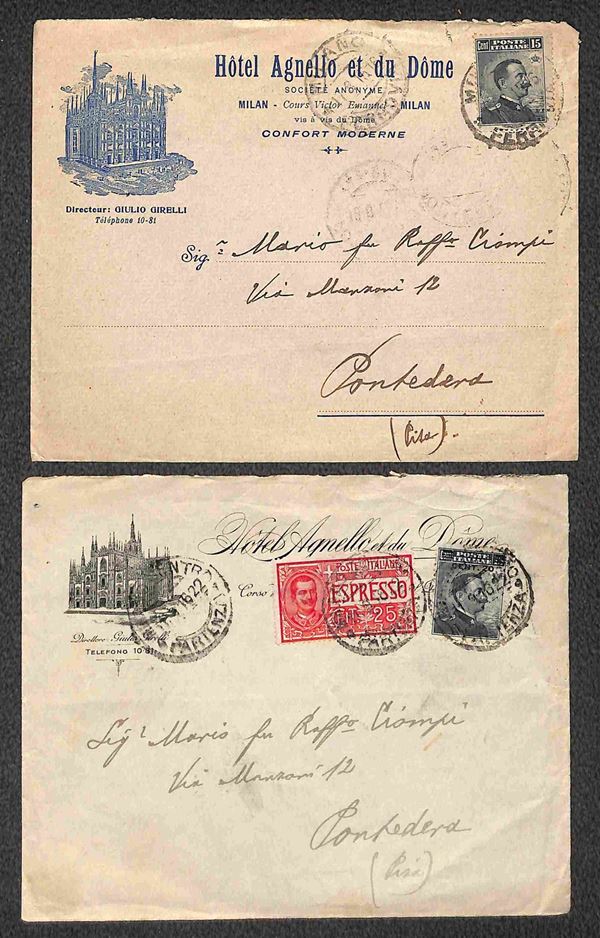 Hôtel Agnello et du Dôme
SOCIÉTÉ ANONYME
MILAN - Cours Victor Emanuel - MILAN
vis à vis du Dôme
CONFORT MODERNE
Cent POSTE ITALIANE 15
Directeur: GIULIO GIRELLI
Téléphone 10-81
Sig.r Mario fu Raff.o Ciompi
Via Manzoni 12
Pontedera
(Pisa).
Hotel Agnello et du Dôme
Corso
POSTE ITALIANE
ESPRESSO
CENT. 25
PARTENZA
Direttore: Giulio Girelli
TELEFONO 10-81
Sig.r Mario fu Raff.o Ciompi
Via Manzoni 12
Pontedera
(Pisa)